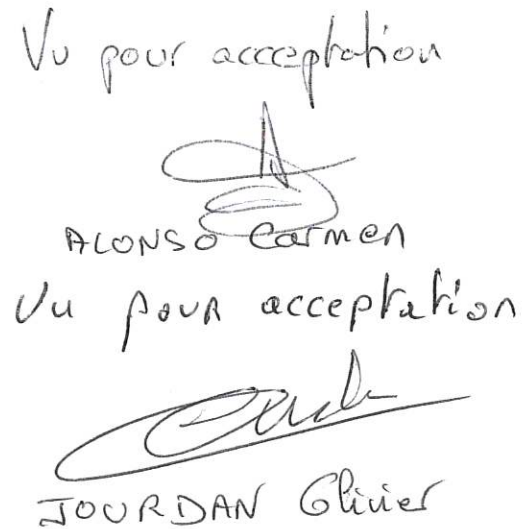 Vu pour accceptation
ALONSO Carmen
Vu pour acceptation
JOURDAN Olivier